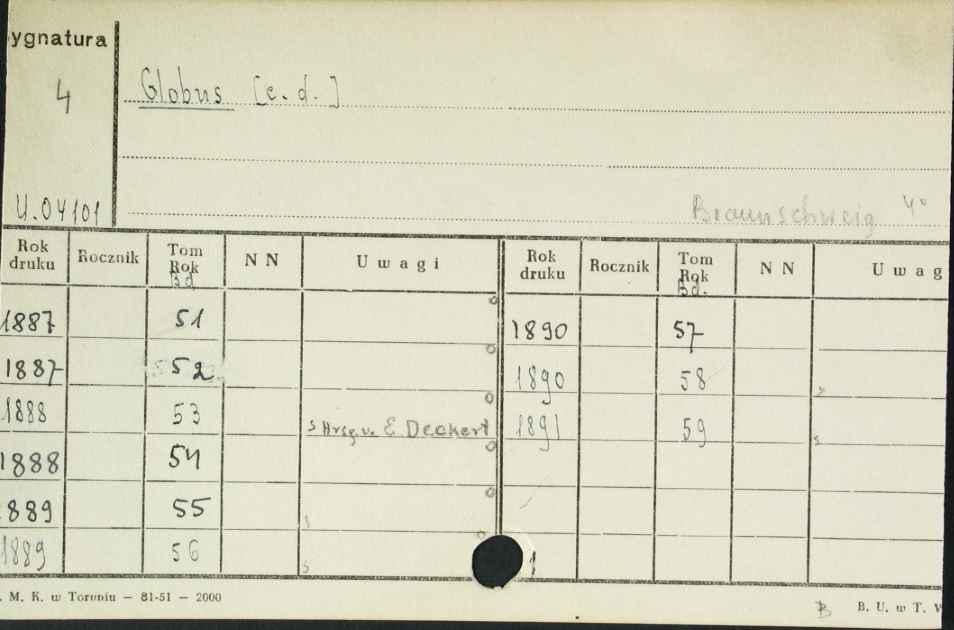 ygnatura
4
Globus [c.d.]
U.04101
Braunschweig 4°
Rok druku Rocznik Tom Rok Bd NN Uwagi Rok druku Rocznik Tom Rok Bd. NN Uwag
1887 51 1890 57
1887 52 1890 58
1888 53 Hrsg. v. E. Deckert 1891 59
1888 54
889 55
1889 56
. M. K. w Toruniu — 81-51 — 2000 B B. U. w T.